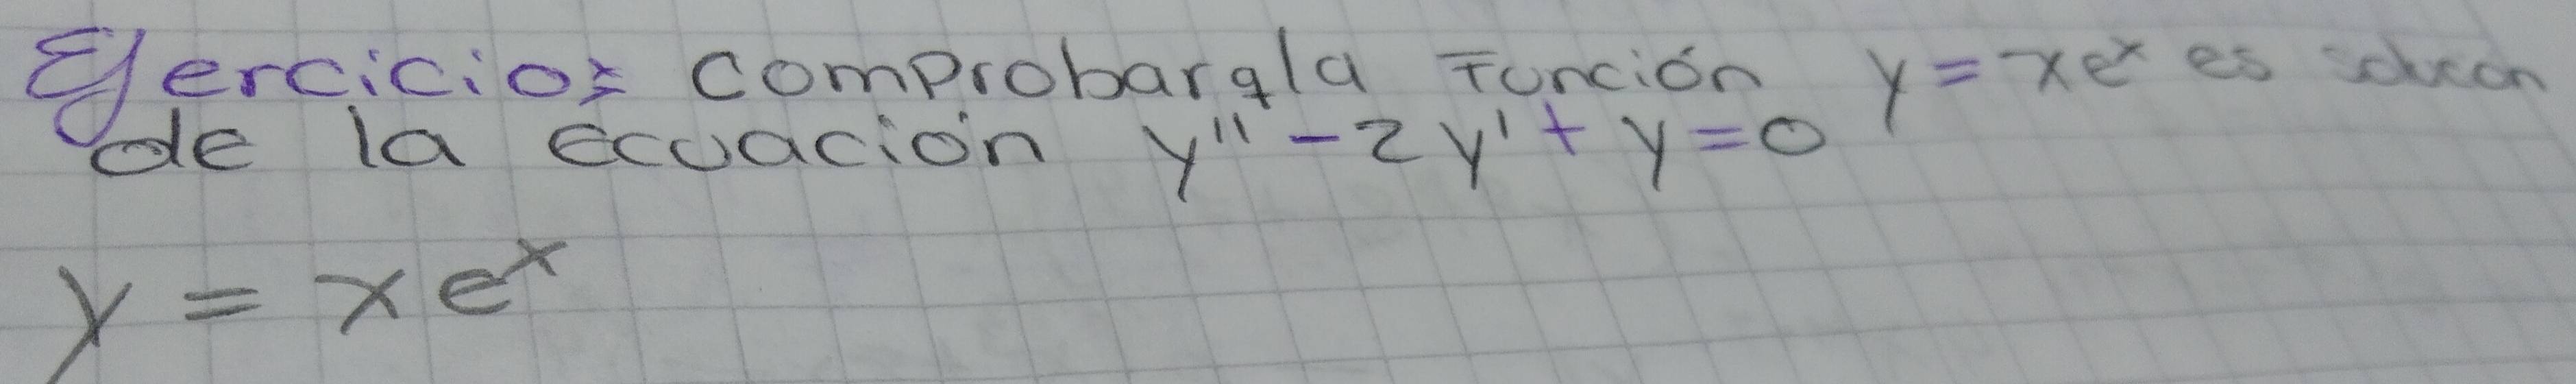 Ejercicio: comprobar q la Función y = xeˣ es solucon
de la ecuación y'' - 2y' + y = 0
y = xeˣ